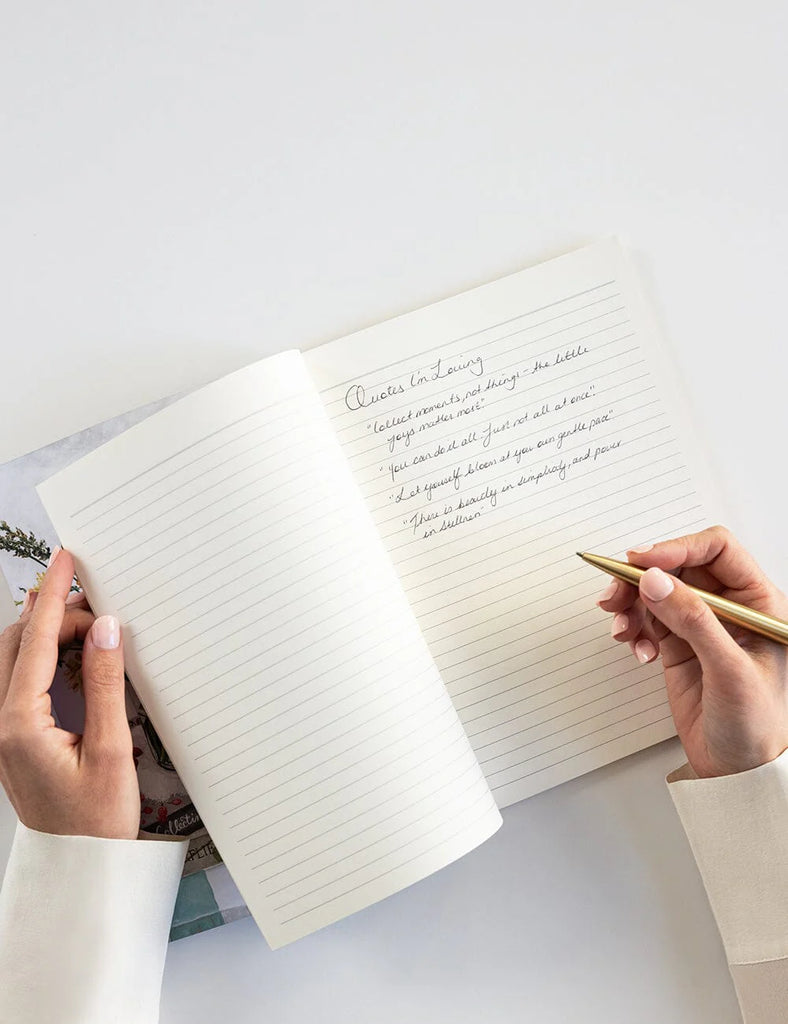 Quotes I'm Loving
"Collect moments, not things - the little
joys matter most"
"You can do it all. Just not all at once!"
"Let yourself bloom at your own gentle pace"
"There is beauty in simplicity, and power
in stillness"
Collectin